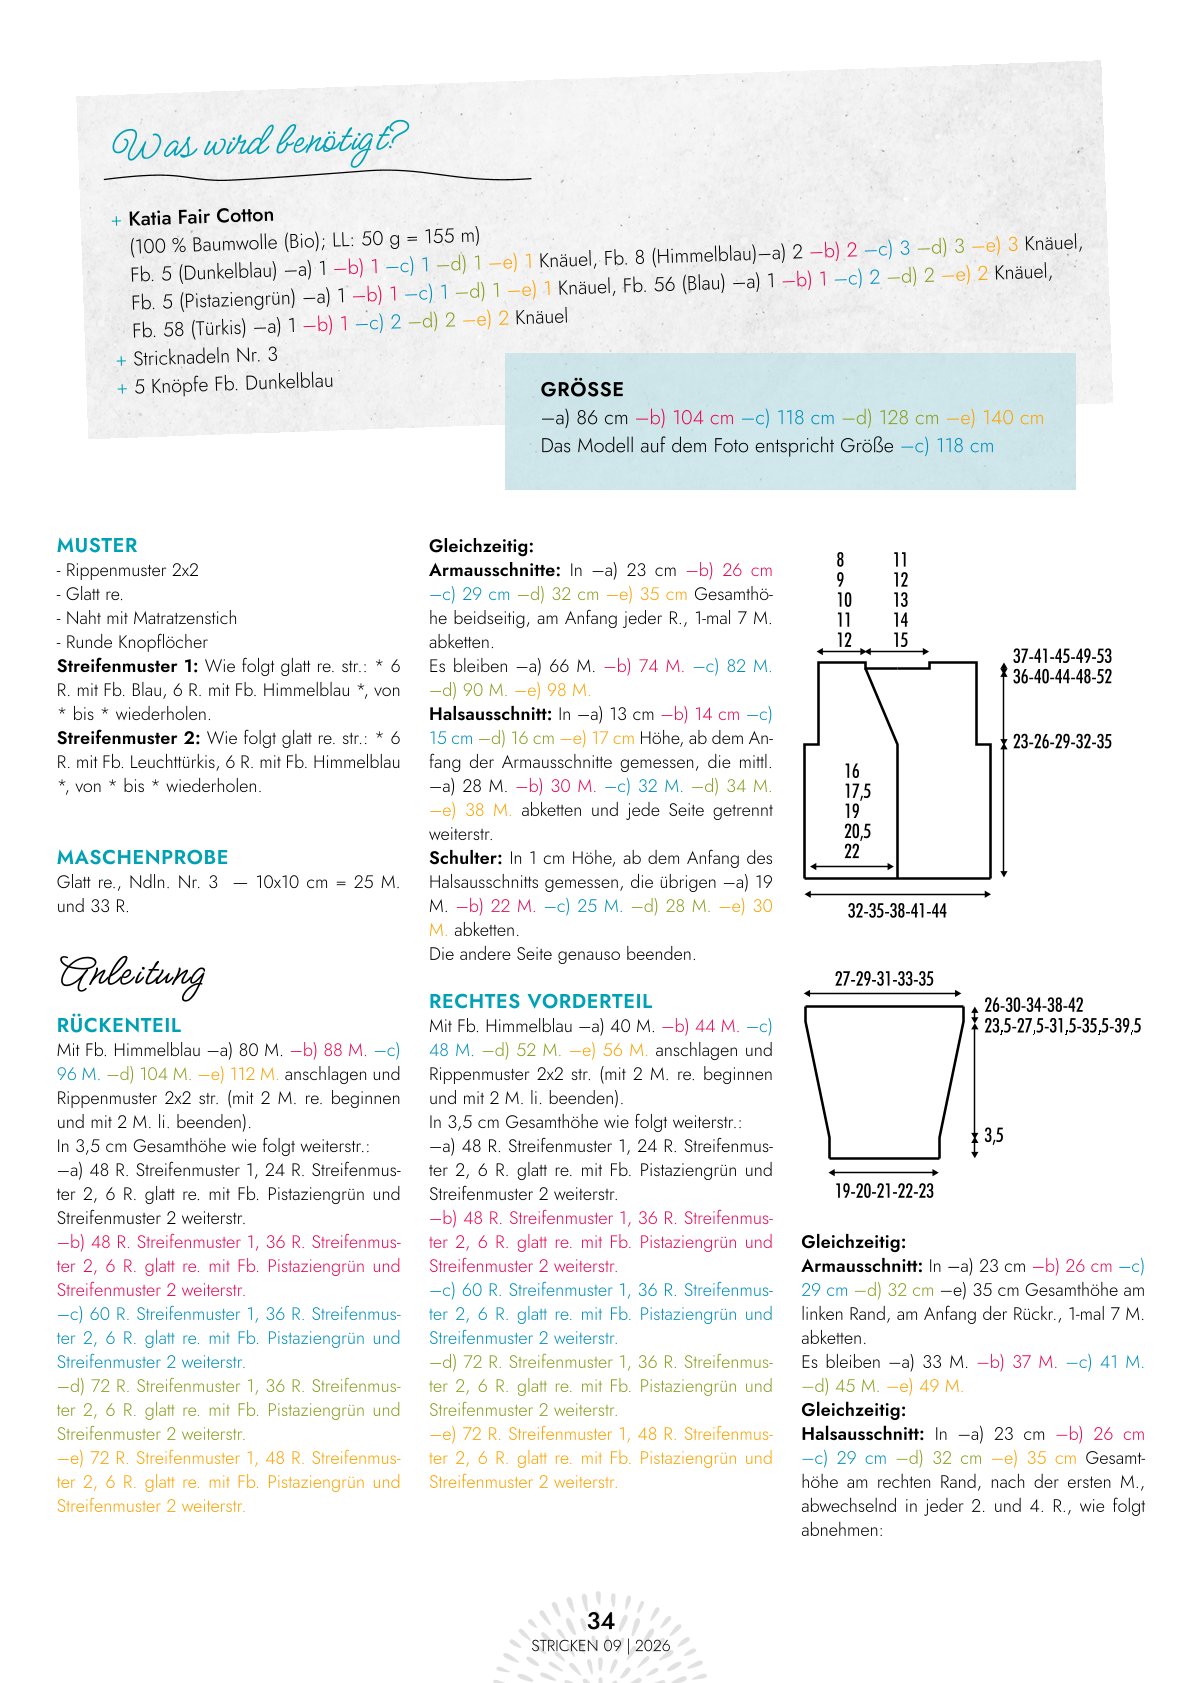 Was wird benötigt?
+ Katia Fair Cotton
(100 % Baumwolle (Bio); LL: 50 g = 155 m)
Fb. 5 (Dunkelblau) –a) 1 –b) 1 –c) 1 –d) 1 –e) 1 Knäuel, Fb. 8 (Himmelblau)–a) 2 –b) 2 –c) 3 –d) 3 –e) 3 Knäuel,
Fb. 5 (Pistaziengrün) –a) 1 –b) 1 –c) 1 –d) 1 –e) 1 Knäuel, Fb. 56 (Blau) –a) 1 –b) 1 –c) 2 –d) 2 –e) 2 Knäuel,
Fb. 58 (Türkis) –a) 1 –b) 1 –c) 2 –d) 2 –e) 2 Knäuel
+ Stricknadeln Nr. 3
+ 5 Knöpfe Fb. Dunkelblau
GRÖSSE
–a) 86 cm –b) 104 cm –c) 118 cm –d) 128 cm –e) 140 cm
Das Modell auf dem Foto entspricht Größe –c) 118 cm
MUSTER
- Rippenmuster 2x2
- Glatt re.
- Naht mit Matratzenstich
- Runde Knopflöcher
Streifenmuster 1: Wie folgt glatt re. str.: * 6
R. mit Fb. Blau, 6 R. mit Fb. Himmelblau *, von
* bis * wiederholen.
Streifenmuster 2: Wie folgt glatt re. str.: * 6
R. mit Fb. Leuchttürkis, 6 R. mit Fb. Himmelblau
*, von * bis * wiederholen.
MASCHENPROBE
Glatt re., Ndln. Nr. 3 — 10x10 cm = 25 M.
und 33 R.
Anleitung
RÜCKENTEIL
Mit Fb. Himmelblau –a) 80 M. –b) 88 M. –c)
96 M. –d) 104 M. –e) 112 M. anschlagen und
Rippenmuster 2x2 str. (mit 2 M. re. beginnen
und mit 2 M. li. beenden).
In 3,5 cm Gesamthöhe wie folgt weiterstr.:
–a) 48 R. Streifenmuster 1, 24 R. Streifenmus-
ter 2, 6 R. glatt re. mit Fb. Pistaziengrün und
Streifenmuster 2 weiterstr.
–b) 48 R. Streifenmuster 1, 36 R. Streifenmus-
ter 2, 6 R. glatt re. mit Fb. Pistaziengrün und
Streifenmuster 2 weiterstr.
–c) 60 R. Streifenmuster 1, 36 R. Streifenmus-
ter 2, 6 R. glatt re. mit Fb. Pistaziengrün und
Streifenmuster 2 weiterstr.
–d) 72 R. Streifenmuster 1, 36 R. Streifenmus-
ter 2, 6 R. glatt re. mit Fb. Pistaziengrün und
Streifenmuster 2 weiterstr.
–e) 72 R. Streifenmuster 1, 48 R. Streifenmus-
ter 2, 6 R. glatt re. mit Fb. Pistaziengrün und
Streifenmuster 2 weiterstr.
Gleichzeitig:
Armausschnitte: In –a) 23 cm –b) 26 cm
–c) 29 cm –d) 32 cm –e) 35 cm Gesamthö-
he beidseitig, am Anfang jeder R., 1-mal 7 M.
abketten.
Es bleiben –a) 66 M. –b) 74 M. –c) 82 M.
–d) 90 M. –e) 98 M.
Halsausschnitt: In –a) 13 cm –b) 14 cm –c)
15 cm –d) 16 cm –e) 17 cm Höhe, ab dem An-
fang der Armausschnitte gemessen, die mittl.
–a) 28 M. –b) 30 M. –c) 32 M. –d) 34 M.
–e) 38 M. abketten und jede Seite getrennt
weiterstr.
Schulter: In 1 cm Höhe, ab dem Anfang des
Halsausschnitts gemessen, die übrigen –a) 19
M. –b) 22 M. –c) 25 M. –d) 28 M. –e) 30
M. abketten.
Die andere Seite genauso beenden.
RECHTES VORDERTEIL
Mit Fb. Himmelblau –a) 40 M. –b) 44 M. –c)
48 M. –d) 52 M. –e) 56 M. anschlagen und
Rippenmuster 2x2 str. (mit 2 M. re. beginnen
und mit 2 M. li. beenden).
In 3,5 cm Gesamthöhe wie folgt weiterstr.:
–a) 48 R. Streifenmuster 1, 24 R. Streifenmus-
ter 2, 6 R. glatt re. mit Fb. Pistaziengrün und
Streifenmuster 2 weiterstr.
–b) 48 R. Streifenmuster 1, 36 R. Streifenmus-
ter 2, 6 R. glatt re. mit Fb. Pistaziengrün und
Streifenmuster 2 weiterstr.
–c) 60 R. Streifenmuster 1, 36 R. Streifenmus-
ter 2, 6 R. glatt re. mit Fb. Pistaziengrün und
Streifenmuster 2 weiterstr.
–d) 72 R. Streifenmuster 1, 36 R. Streifenmus-
ter 2, 6 R. glatt re. mit Fb. Pistaziengrün und
Streifenmuster 2 weiterstr.
–e) 72 R. Streifenmuster 1, 48 R. Streifenmus-
ter 2, 6 R. glatt re. mit Fb. Pistaziengrün und
Streifenmuster 2 weiterstr.
8 11
9 12
10 13
11 14
12 15
37-41-45-49-53
36-40-44-48-52
23-26-29-32-35
16
17,5
19
20,5
22
32-35-38-41-44
27-29-31-33-35
26-30-34-38-42
23,5-27,5-31,5-35,5-39,5
3,5
19-20-21-22-23
Gleichzeitig:
Armausschnitt: In –a) 23 cm –b) 26 cm –c)
29 cm –d) 32 cm –e) 35 cm Gesamthöhe am
linken Rand, am Anfang der Rückr., 1-mal 7 M.
abketten.
Es bleiben –a) 33 M. –b) 37 M. –c) 41 M.
–d) 45 M. –e) 49 M.
Gleichzeitig:
Halsausschnitt: In –a) 23 cm –b) 26 cm
–c) 29 cm –d) 32 cm –e) 35 cm Gesamt-
höhe am rechten Rand, nach der ersten M.,
abwechselnd in jeder 2. und 4. R., wie folgt
abnehmen:
34
STRICKEN 09 | 2026